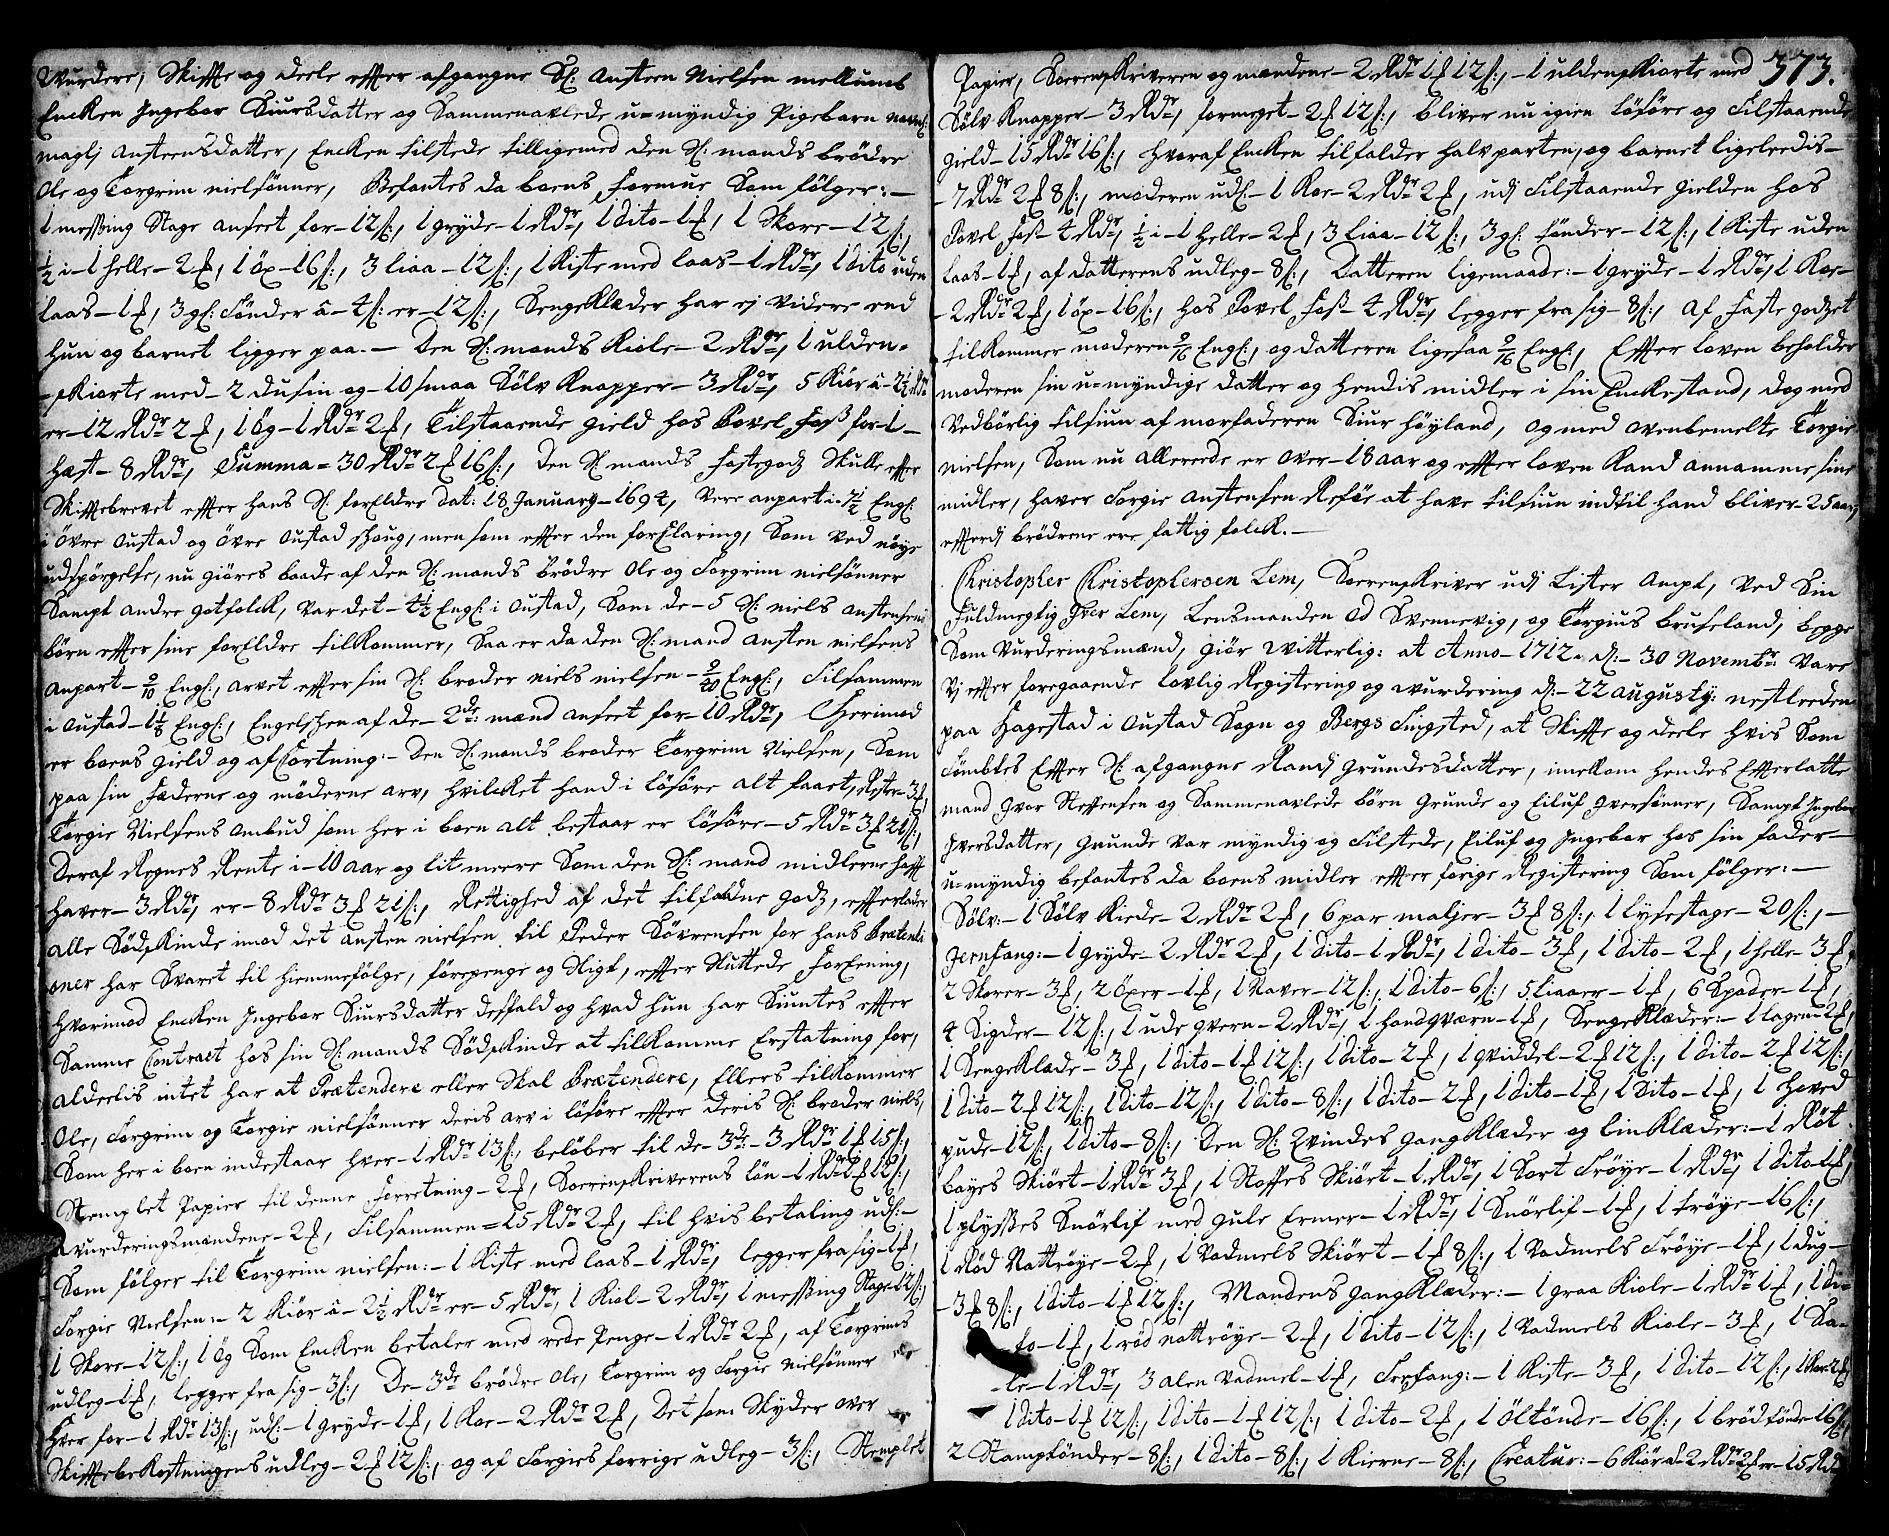 Wurdere, Skiffte og deele effter afgangne Sl: Ansteen Nielsen mellumb
Encken Ingebor Siursdatter og Sammenavlede u=myndig Pigebarn navnl:
maglj Ansteensdatter, Encken tilstede tilligemed den Sl: mands brödre
Ole og Torgrim nielsönner, Befantes da boens formue Som fölger:—
1 messing Stage anseet for—12 s:, 1 gryde—1 Rdr, 1 dito—1 f, 1 Skore—12 s:,
½ i—1 helle—2 f, 1 öx—16 s:, 3 liaa—12 s:, 1 Kiste med laas—1 Rdr, 1 dito uden
laas—1 f, 3 gl: Tönder â—4 s: er—12 s:, Sengeklæder har ej videre end
hun og barnet ligger paa.— Den Sl: mands Kiole—2 Rdr, 1 ulden=
skiorte med—2 dusin og—10 smaa Sölv Knapper—3 Rdr, 5 Kiör â—2½ Rdr
er—12 Rdr 2 f, 1 Ög—1 Rdr 2 f, Tilstaaende gield hos Povel Foss for—1—
Hæst—8 Rdr, Summa=30 Rdr 2 f 16 s:, den Sl: mands Fastegodz Skulle effter
Skifftebrevet effter hans Sl: forEldre dat: 18 January—1694, Vere anpart i—7½ Engl:
i Övre Austad og Övre Austad Shoug, men som effter den forklaring, Som Ved nöye
udspörgelse, nu giöres baade af den Sl: mands brödre Ole og Torgrim nielsönner
Sampt andre gotfolck, var det—4½ Engl: i Austad, Som de—5 Sl: niels Anstensens
börn effter sine forEldre tilkommer, Saa er da den Sl: mand Ansten nielsens
anpart—9/10 Engl:, arvet effter sin Sl: broder niels nielsen—9/40 Engl:, Tilsammen
i Austad—1⅛ Engl:, Engelschen af de—2de: mænd anseet for—10 Rdr, Hverimod
er boens gield og afkortning:— Den Sl: mands broder Torgrim Nielsen, Som
paa sin Fæderne og möderne arv, hvilcket hand i löföre alt faaet, Rester—3 f,
Torgie Nielsens Ombud som her i boen alt bestaar er löföre—5 Rdr 3 f 21 s:,
Deraf Regnes Rente i—10 aar og lit meere Som den Sl: mand midlerne hafft
haver—3 Rdr, er—8 Rdr 3 f 21 s:, Rettighed af det tilfaldne godz, effterlader
alle Södskinde imod det Ansten nielsen til Peder Sövrensen for hans Prætenti
oner har Svaret til hiemmefölge, förepenge og Skigt, effter Sluttede Forening,
Hvorimod Encken Ingebor Siursdatter desfald og hvad hun har Siuntes effter
Samme Contract hos sin Sl: mands Södskinde at tilkomme Erstatning for,
alderlis intet har at Prætendere eller Skal Prætendere, Ellers tilkommer
Ole, Torgrim og Torgie nielsönner deris arv i löföre effter deris Sl: broder niels,
Som her i boen indestaar hver—1 Rdr 13 s:, belöber til de—3de—3 Rdr 1 f 15 s:,
Stemplet Papier til denne Forretning—2 f, Sorenskriverens lön—1 Rdr 1 f 12 s:,
Wurderingsmændene—2 f, Tilsammen=15 Rdr 2 f, til hvis betaling udl:—
Som fölger til Torgrim nielsen:—1 Kiste med laas—1 Rdr, legger fra sig—1 f,
Torgie Nielsen:—2 Kiör â—2½ Rdr er—5 Rdr, 1 Kiol—2 Rdr, 1 messing Stage—12 s:,
1 Skore—12 s:, 1 Ög Som Encken betaler med rede Penge—1 Rdr 2 f, af Torgrims
udleg—1 f, legger fra sig—3 s:, De—3de brödre Ole, Torgrim og Torgie nielsönner
Hver for—1 Rdr 13 s:, udl:—1 gryde—1 f, 1 Koe—2 Rdr 2 f, Det som Skyder over
Skifftebekostningens udleg—2 f 12 s:, og af Torgies forrige udleg—3 s:, Stemplet
373.
Papier, Sorenskriveren og mændene—2 Rdr 1 f 12 s:,—1 uldenskiorte med
Sölv Knapper—3 Rdr, formeget—2 f 12 s:, bliver nu igien löföre og Tilstaaende
gield—15 Rdr 16 s:, hvoraf Encken tilfalder halvparten, og barnet ligeledis—
—7 Rdr 2 f 8 s:, moderen udl:—1 Koe—2 Rdr 2 f, udj Tilstaaende gielden hos
Povel Foss—4 Rdr, ½ i—1 Helle—2 f, 3 liaa—12 s:, 3 gl: tönder—12 s:, 1 Kiste uden
laas—1 f, af datterens udleg—8 s:, Datteren ligemaade:—1 gryde—1 Rdr, 1 Koe—
—2 Rdr 2 f, 1 öx—16 s:, hos Povel Foss—4 Rdr, legger fra sig—8 s:, Af faste godzet
tilkommer moderen 9/16 Engl:, og datteren ligesaa 9/16 Engl:, Effter loven beholder
moderen sin u=myndige datter og hendis midler i sin Enckestand, dog med
Vedbörlig tilsiun af morfaderen Siur Höyland, og med ovenbemelte Torgie
nielsen, Som nu allerede er over—18 aar og effter loven Kand annamme sine
midler, haver Torgie Anstensen Refös at have tilsiun indtil hand bliver—25 aar,
efftersj brödrene ere fattig folck.—
Christopher Christophersen Lem, Sorenskriver udj Lister Ampt, Ved Sin
Fuldmegtig Iver Lem, Lensmanden Od Svennevig, og Torgius Bruseland, begge
Som Vurderingsmænd, giör Witterlig: at Anno—1712. d:—30 Novembr Vare
Vj effter foregaaende lovlig Registering og wurdering d:—22 augusty: nestleeden
paa Hagestad i Austad Sogn og Bergs Tingsted, at Skiffte og deele hvis Som
fandtes Effter Sl: afgangne Randj Grundesdatter, imellom hendes Effterlatte
mand Iver Steffensen og Sammenavlede börn Grunde og Eiluf Iversönner, Sampt Ingebor
Iversdatter, Grunde var myndig og Tilstede, Eiluf og Ingebor hos sin fader—
u=myndig befantes da boens midler effter forige Registering Som fölger:—
Sölv:—1 Sölv Kiede—2 Rdr 2 f, 6 par maljer—3 f 8 s:, 1 lysestage—20 s:,—
Jernfang:—1 gryde—2 Rdr 2 f, 1 dito—1 Rdr, 1 dito—3 f, 1 dito—2 f, 1 helle—3 f,
2 Skorer—3 f, 2 öxer—1 f, 1 Naver—12 s:, 1 dito—6 s:, 5 liaaer—1 f, 6 Spader—1 f,
4 Sigder—12 s:, 1 ude qvern—2 Rdr, 1 handqværn—1 f, Sengeklæder:—1 lagen—2 f,
1 Sengeklæde—3 f, 1 dito—1 f 12 s:, 1 dito—2 f, 1 qviddel—2 f 12 s:, 1 dito—2 f 12 s:,
1 dito—2 f 12 s:, 1 dito—12 s:, 1 dito—8 s:, 1 dito—2 f, 1 dito—1 f, 1 dito—1 f, 1 hoved
pude—12 s:, 1 dito—8 s:, Den Sl: Qvindes gangklæder og linklæder:—1 Röt
boyes Skiört—1 Rdr 3 f, 1 Stoffes Skiört—1 Rdr, 1 Sort Tröye—1 Rdr, 1 dito—1 f,
1 plysses Snörlif med gule Ermer—1 Rdr, 1 Snörlif—1 f, 1 tröye—16 s:,
1 Röd Nattröye—2 f, 1 Vadmels Skiört—1 f 8 s:, 1 Vadmels Tröye—1 f, 1 dug—
—3 f 8 s:, 1 dito—1 f 12 s:, Mandens gangklæder:—1 graa Kiole—1 Rdr 1 f, 1 di=
to—1 f, 1 röd nattröye—2 f, 1 dito—12 s:, 1 Vadmels Kiole—3 f, 1 Sa=
le—1 Rdr, 3 alen Vadmel—1 f, Træfang:—1 Kiste—3 f, 1 dito—12 s:,
1 dito—1 f 12 s:, 1 dito—1 f 12 s:, 1 dito—2 f, 1 öltönde—16 s:, 1 brödtönde—16 s:,
2 Stamptönder—8 s:, 1 dito—8 s:, 1 Kierne—8 s:, Creatur:—6 Kiör â—2 Rdr 2 f er—15 Rdr